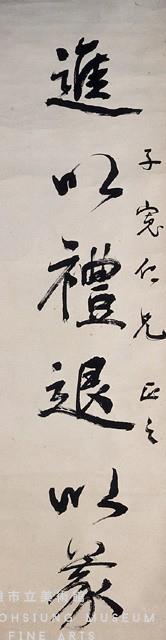 子寬仁兄正之
進以禮退以義
雄市立美術館
OHSIUNG MUSEUM
FINE ARTS